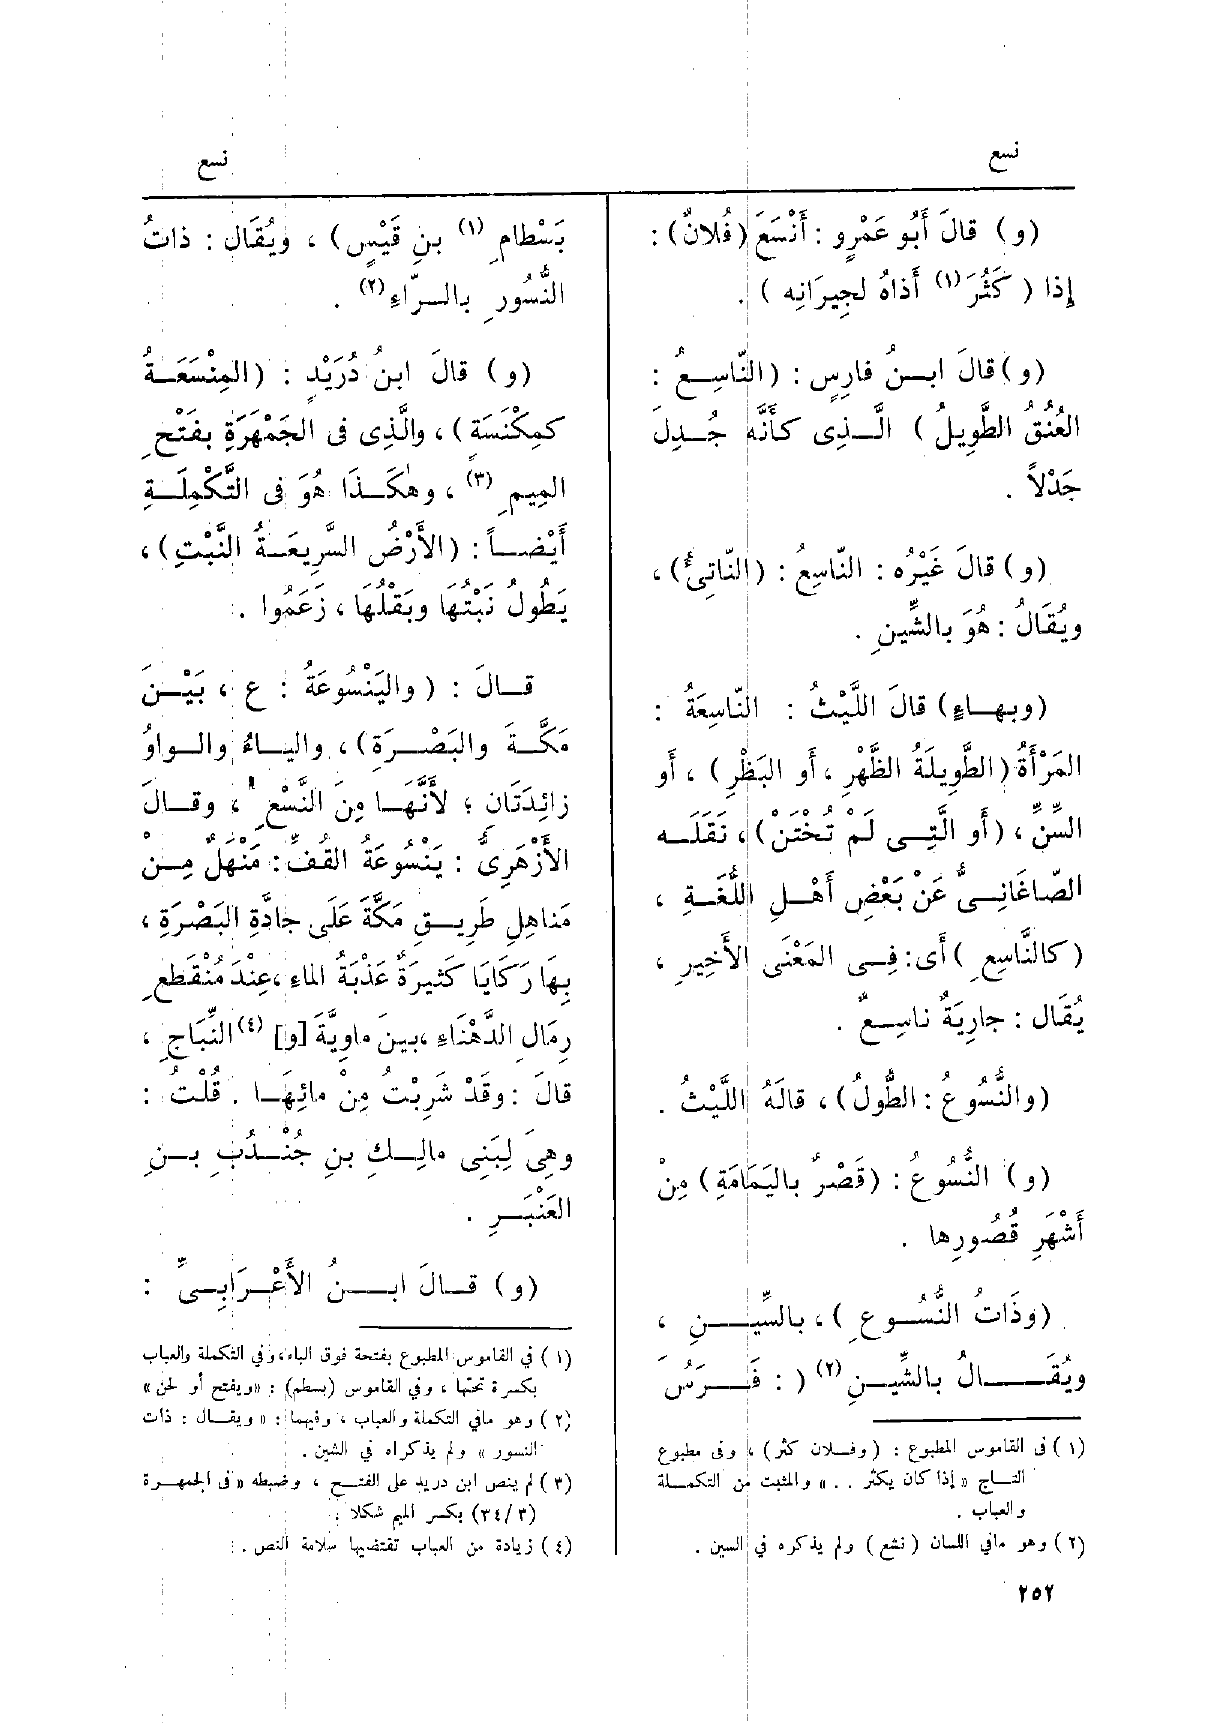 نسع
نسع
(و) قالَ أَبُو عَمْرٍو : أَنْسَعَ (فُلانٌ) :
إذا ( كَثُرَ (١) أَذاهُ لجِيرَانِه ) .
(و) قالَ ابنُ فارِسٍ : (النّاسِعُ :
العُنُقُ الطَّوِيلُ ) الَّذِى كأَنَّه جُدِلَ
جَدْلاً .
(و) قالَ غَيْرُه : النّاسِعُ : (النّاتِئُ) ،
ويُقَالُ : هُوَ بالشِّينِ .
(وبهاءٍ) قالَ اللَّيْثُ : النّاسِعَةُ :
المَرْأَةُ (الطَّوِيلَةُ الظَّهْرِ ، أَو البَظْرِ ) ، أَو
السِّنِّ ، (أَو الَّتِى لَمْ تُخْتَنْ) ، نَقَلَه
الصّاغَانِىُّ عَنْ بَعْضِ أَهْلِ اللُّغَةِ ،
(كالنَّاسِعِ ) أَى: فِى المَعْنَى الأَخِيرِ ،
يُقَال : جارِيَةٌ ناسِعٌ .
(والنُّسُوعُ : الطُّولُ) ، قالَهُ اللَّيْثُ .
(و) النُّسُوعُ : (قَصْرٌ باليَمَامَةِ) مِنْ
أَشْهَرِ قُصُورِها .
(وذَاتُ النُّسُوعِ ) ، بالسِّينِ ،
ويُقَالُ بالشِّينِ (٢) ( : فَرَسُ
(١) فى القاموس المطبوع : (وفلان كثر) ، وفى مطبوع
التاج « إذا كان يكثر . . » والمثبت من التكملة
والعباب .
(٢) وهو مافي اللسان ( نشع ) ولم يذكره في السين .
بَسْطامِ (١) بنِ قَيْسٍ) ، ويُقَال : ذاتُ
النُّسُورِ بالرّاءِ (٢) .
(و) قالَ ابنُ دُرَيْدٍ : (المِنْسَعَةُ
كمِكْنَسَةٍ ) ، والَّذِى فى الجَمْهَرَةِ بفَتْحِ
المِيمِ (٣) ، وهٰكَذَا هُوَ فى التَّكْمِلَةِ
أَيْضاً : (الأَرْضُ السَّرِيعَةُ النَّبْتِ) ،
يَطُولُ نَبْتُها وبَقْلُهَا ، زَعَمُوا .
قالَ : ( واليَنْسُوعَةُ : ع ، بَيْنَ
مَكَّةَ والبَصْرَةِ) ، والياءُ والواوُ
زائِدَتَان ؛ لأَنَّهَا مِنَ النِّسْعِ ، وقالَ
الأَزْهَرِىُّ : يَنْسُوعَةُ القُفِّ : مَنْهَلٌ مِنْ
مَناهِلِ طَرِيقِ مَكَّةَ عَلَى جادَّةِ البَصْرَةِ ،
بِهَا رَكَايَا كَثِيرَةٌ عَذْبَةُ الماءِ ،عِنْدَ مُنْقَطَعِ
رِمَالِ الدَّهْنَاءِ ،بينَ ماوِيَّةَ [و] (٤) النِّبَاجِ ،
قالَ : وقَدْ شَرِبْتُ مِنْ مائِهَا . قُلْتُ :
وهِىَ لِبَنِى مالِكِ بنِ جُنْدُبِ بنِ
العَنْبَرِ .
(و) قالَ ابنُ الأَعْرَابِىِّ :
(١) في القاموس المطبوع بفتحة فوق الباء، وفي التكملة والعباب
بكسرة تحتها ، وفي القاموس (بسطم) : «ويفتح أو لحن»
(٢) وهو مافي التكملة والعباب ، وفيهما : « ويقال : ذات
النسور » ولم يذكراه في الشين .
(٣) لم ينص ابن دريد على الفتح ، وضبطه « فى الجمهرة
(٣٤/٣) بكسر الميم شكلا .
(٤) زيادة من العباب تقتضيها سلامة النص .
٢٥٢